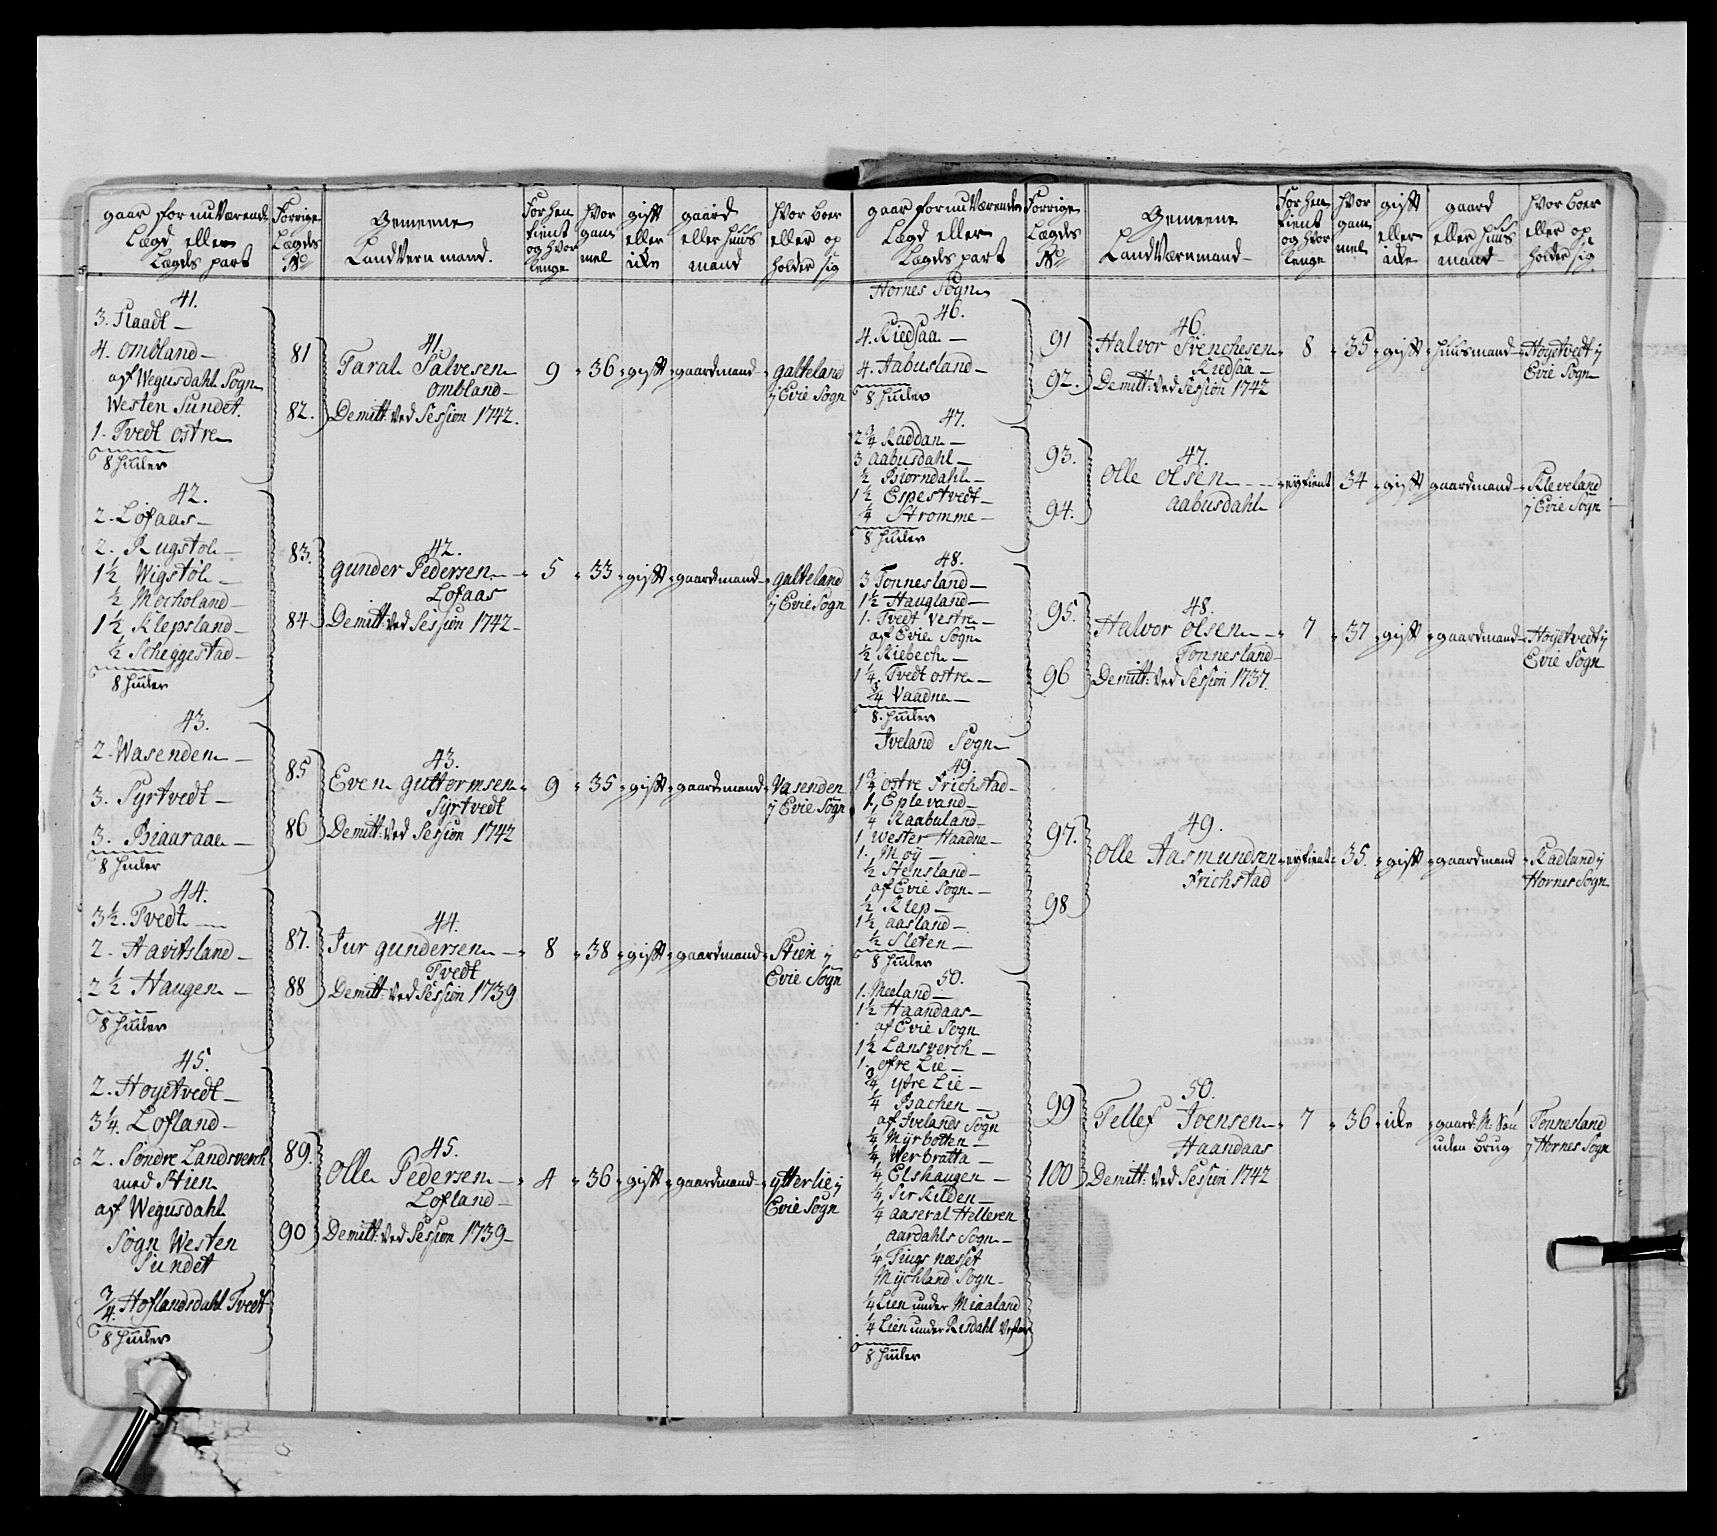 gaar for nu Værende
Lægd eller
Lægds part
Forrige
Lægds
No
Gemeene
Landvern mand.
Forhen
tient
og hvor
lenge
hvor
gam
mel
gift
eller
icke
gaard
eller huus
mand
hvor boer
eller op
holder sig
41.
3. Staadt
4. Ombland
af Wegusdahl Sogn
Westen Sundet.
1. Tvedt ostre
8 Huder
81
82.
41.
Taral Salvesen
Ombland
Demitt: ved Session 1742.
9
36
gift
gaardmand
galteland
j Evie Sogn
42.
2. Lofaas
2. Rugstol
1½ Wigstol
½ Mocholand
1½ Klepsland
½ Scheggestad
8 Huder
83.
84
42.
gunder Pedersen
Lofaas
Demitt: ved Session 1742
5
33
gift
gaardmand
galteland
j Evie Sogn
43.
2. Wasenden
3. Syrtvedt
3. Biaaraae
8 Huder
85
86
43.
Even guttormsen
Syrtvedt
Demitt: ved Session 1742
9
35
gift
gaardmand
Vasenden
j Evie Sogn
44.
3½. Tvedt
2. Havitsland
2½ Haugen
8 Huder
87.
88
44.
Jur gundersen
Tvedt
Demitt: ved Session 1739
8
38
gift
gaardmand
Stien j
Evie Sogn
45.
2. Hoyetvedt
3¼. Lofland
2. Søndre Landsverch
med Stien
af Wegusdahl
Sogn Westen
Sundet
¾. Hoflandsdahl Tvedt
8 Huder
89.
90
45.
Olle Pedersen
Lofland
Demitt: ved Session 1739
4
36
gift
gaardmand
ytterlie j
Evie Sogn
gaar for nu Værende
Lægd eller
Lægds part
Forrige
Lægds
No
Gemeene
Landværnmand
Forhen
tient
og hvor
lenge
hvor
gam
mel
gift
eller
icke
gaard
eller huus
mand
hvor boer
eller op
holder sig
Hornes Sogn
46.
4. Kiedsaa
4. Aabusland
8 Huder
91
92.
46.
Halvor Svenchesen
Kiedsaa
Demitt: ved Session 1742
8
35
gift
huusmand
Hoyetvedt j
Evie Sogn
47.
2¾ Raddan
3 Aabusdahl
½ Biorndahl
1½ Espestvedt
¼ Stromme
8 Huder
93.
94.
47.
Olle Olsen
Aabusdahl
eytient
34
gift
gaardmand
Kleveland
j Evie Sogn
48.
3 Tonnesland
1½ Haugland
1. Tvedt Vestre
af Evie Sogn
½ Riebech
1¼ Tvedt ostre
¾ Vaadne
8. Huder
95.
96
48.
Halvor Olsen
Tonnesland
Demitt: ved Session 1737.
7
37
gift
gaardmand
Hoyetvedt j
Evie Sogn
Iveland Sogn
49.
1¾ ostre Frichstad
1. Eplevand
¼ Kaabuland
1 Wester Haadne
1. Moÿ
½ Stensland
af Evie Sogn
½ Klep
1½ aasland
½ Sleten
8 Huder
97.
98
49.
Olle Aasmundsen
Frichstad
eytient
35.
gift
gaardmand
Radland j
Hornes Sogn
50.
1. Meeland
1½ Haandaas
af Evie Sogn
1½ Lansverch
1. ofre Lie
¾ ytre Lie
¼ Bachen
af Ivelands Sogn
¼ Myrbotten
¼ Werbratta
¼ Elshaugen
¼ Sirkilden
¼ Aaseral Helleren
aardahls Sogn
¼ Tings næsset
Mychland Sogn
¼ Lien under Miaaland
¼ Lien under Risdahl Vester
8 Huder
99
100
50.
Tellef Joensen
Haandaas
Demitt: ved Session 1742
7
36
icke
gaard: M: Søn
uden Brug
Tonnesland
j Hornes Sogn